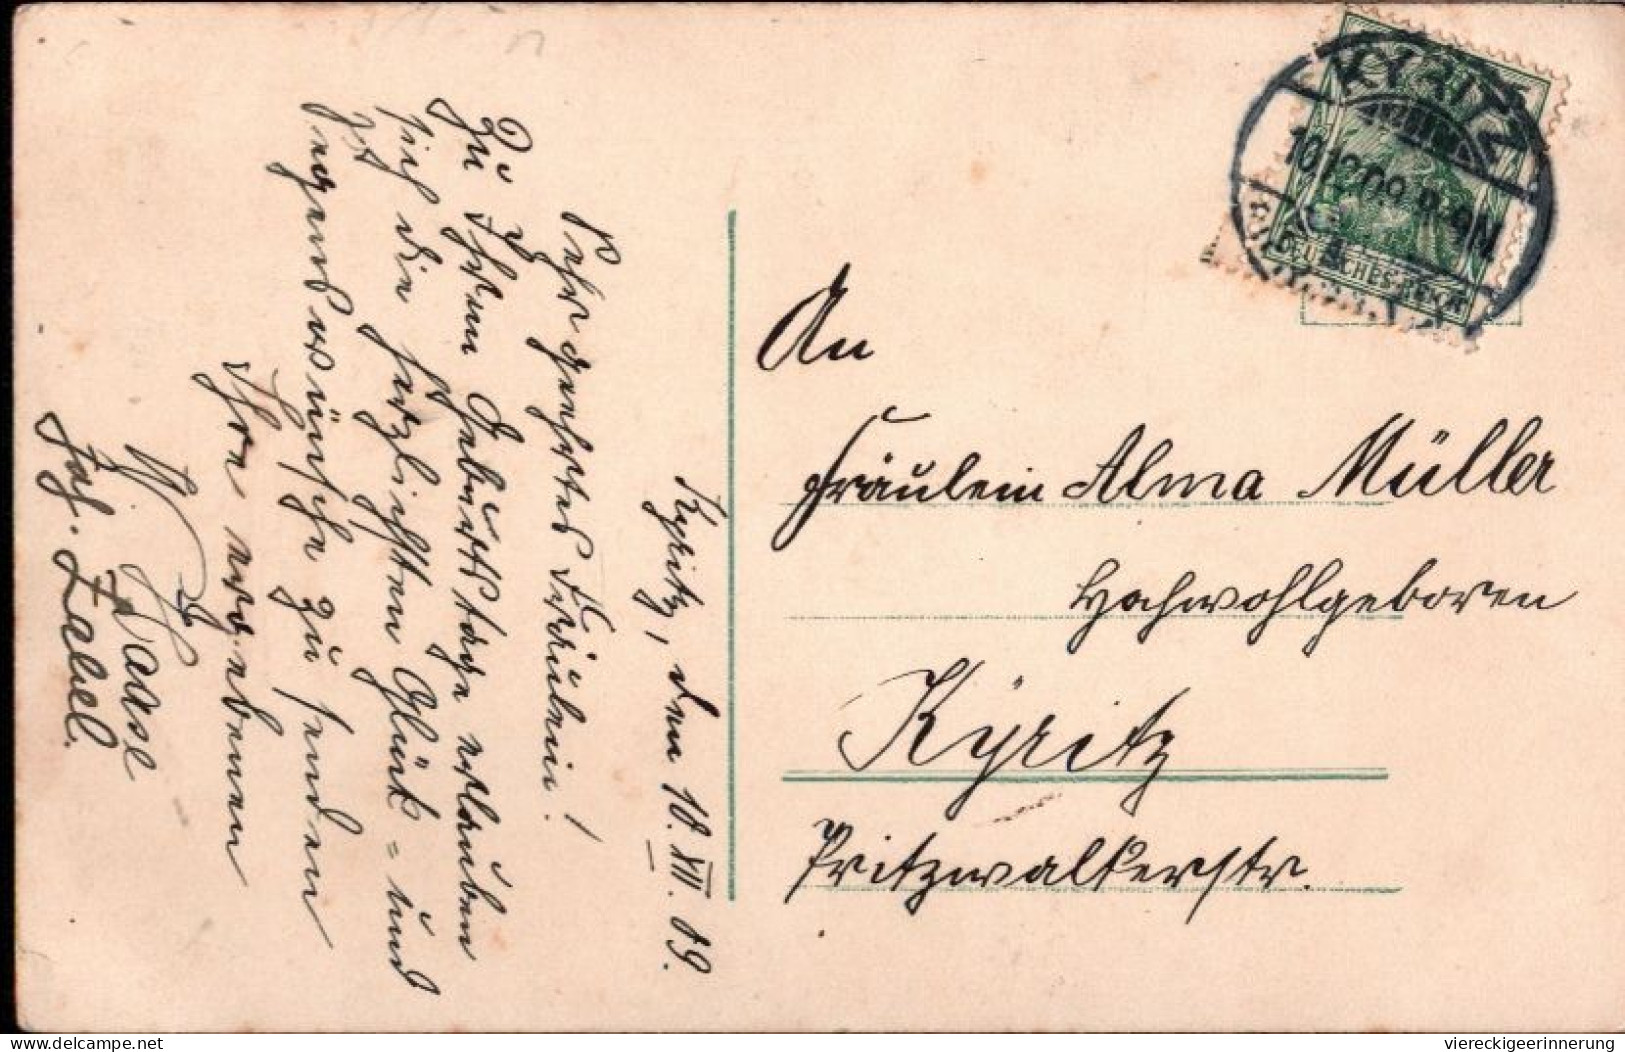 Kyritz, den 10. XII. 09.
Sehr geehrtes Fräulein!
Zu Ihrem Geburtstage erlauben
sich die herzlichsten Glück= und
Segenswünsche zu senden
Ihre ergebenen
W. Haase
Joh. Zabel.
KYRITZ
10.12.09. 8-9N
DEUTSCHES REICH
An
Fräulein Alma Müller
Hochwohlgeboren
Kyritz
Pritzwalkerstr.
delcampe.net
viereckigeerinnerung